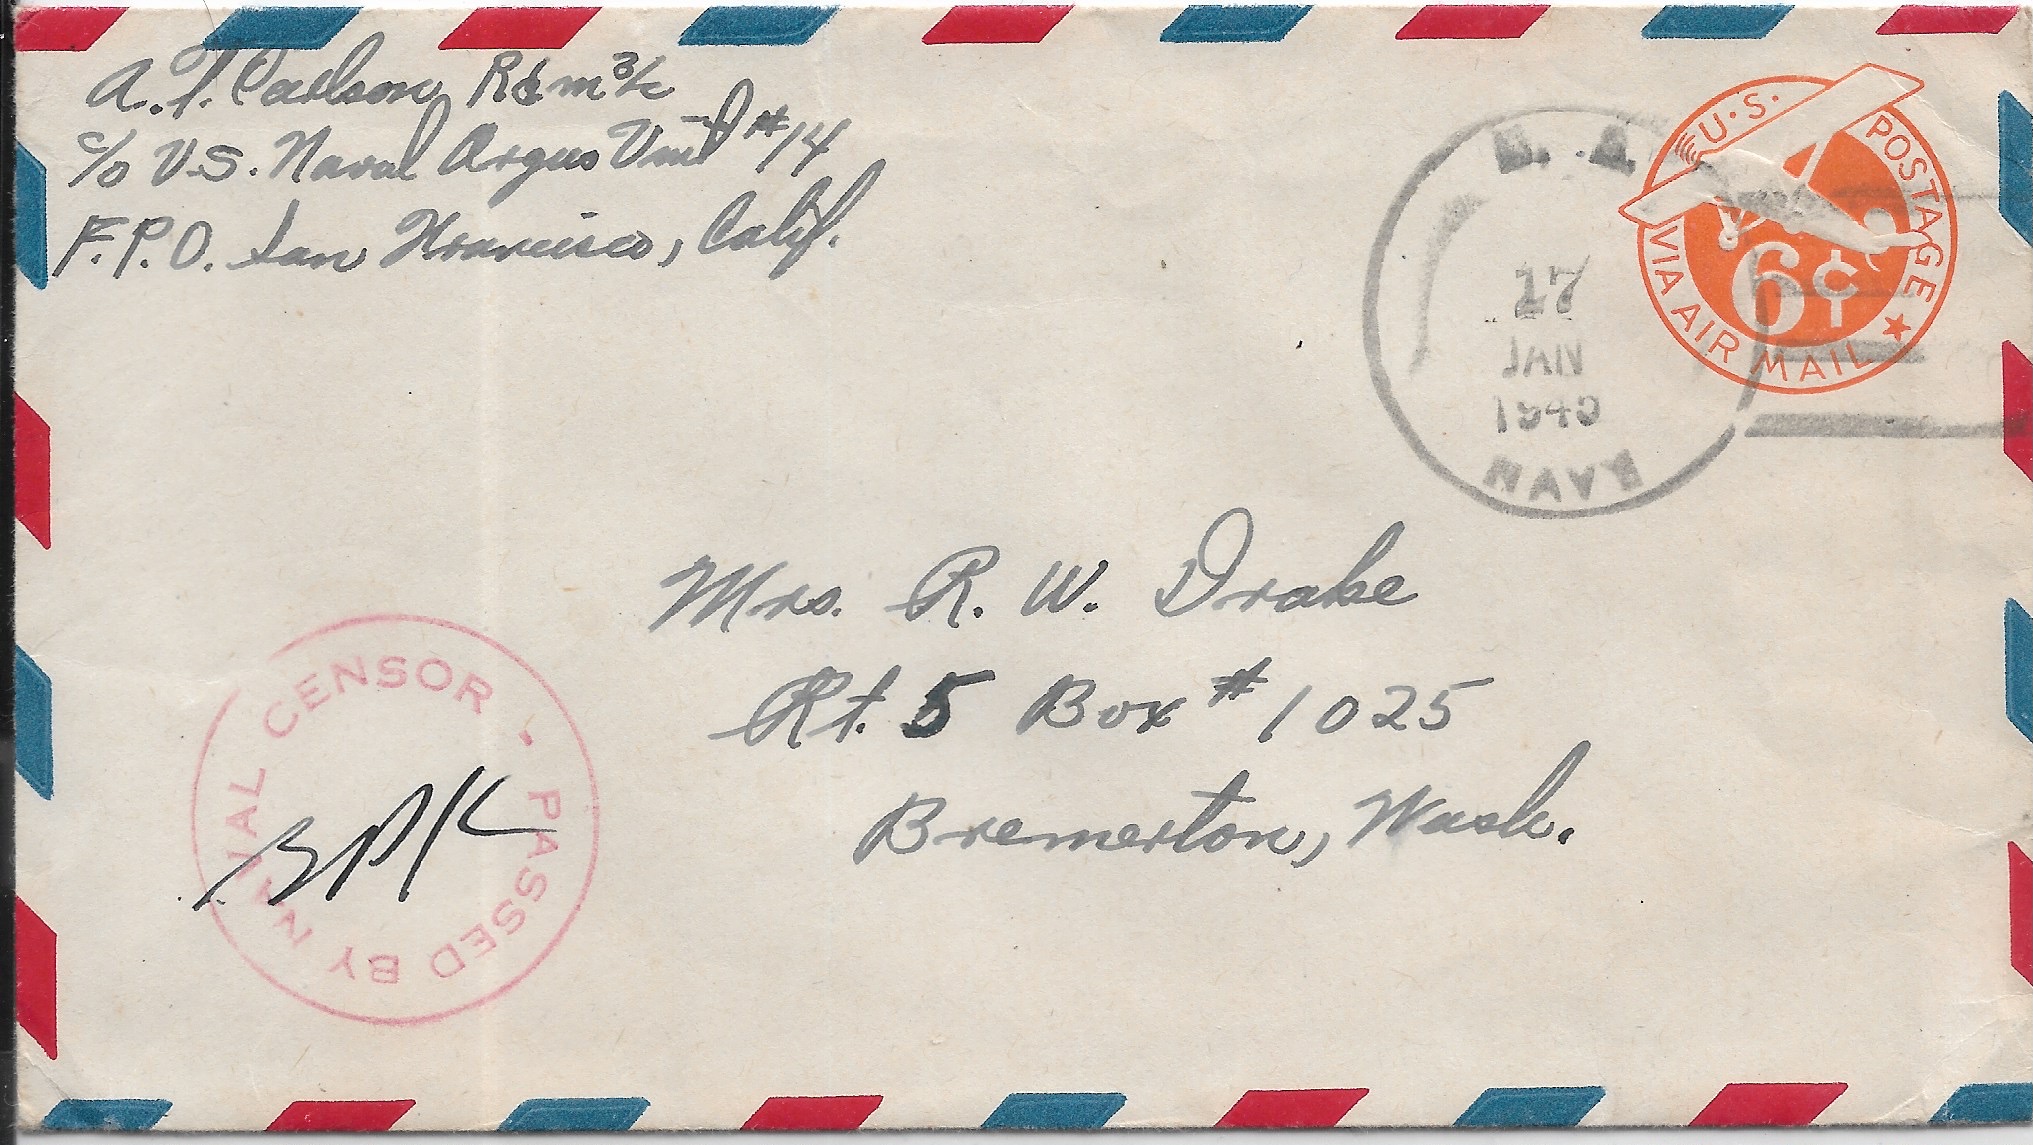 A. T. Carlson RdM 3/c
c/o U.S. Naval Argus Unit #14
F.P.O. San Francisco, Calif.
U.S. POSTAGE
6¢
VIA AIR MAIL
17
JAN
1945
NAVY
Mrs. R. W. Drake
Rt. 5 Box #1025
Bremerton, Wash.
PASSED BY NAVAL CENSOR -